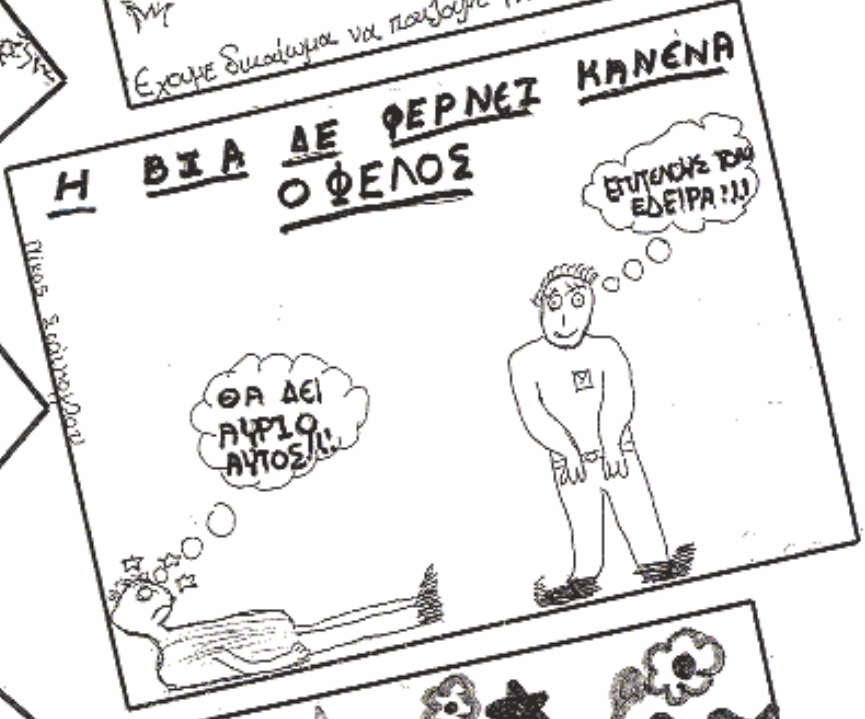 Έχουμε δικαίωμα να παίζουμε
Η ΒΙΑ ΔΕ ΦΕΡΝΕΙ ΚΑΝΕΝΑ
ΟΦΕΛΟΣ
ΕΠΙΤΕΛΟΥΣ ΤΟΝ
ΕΔΕΙΡΑ!!!
ΘΑ ΔΕΙ
ΑΥΡΙΟ
ΑΥΤΟΣ!!!
Νίκος